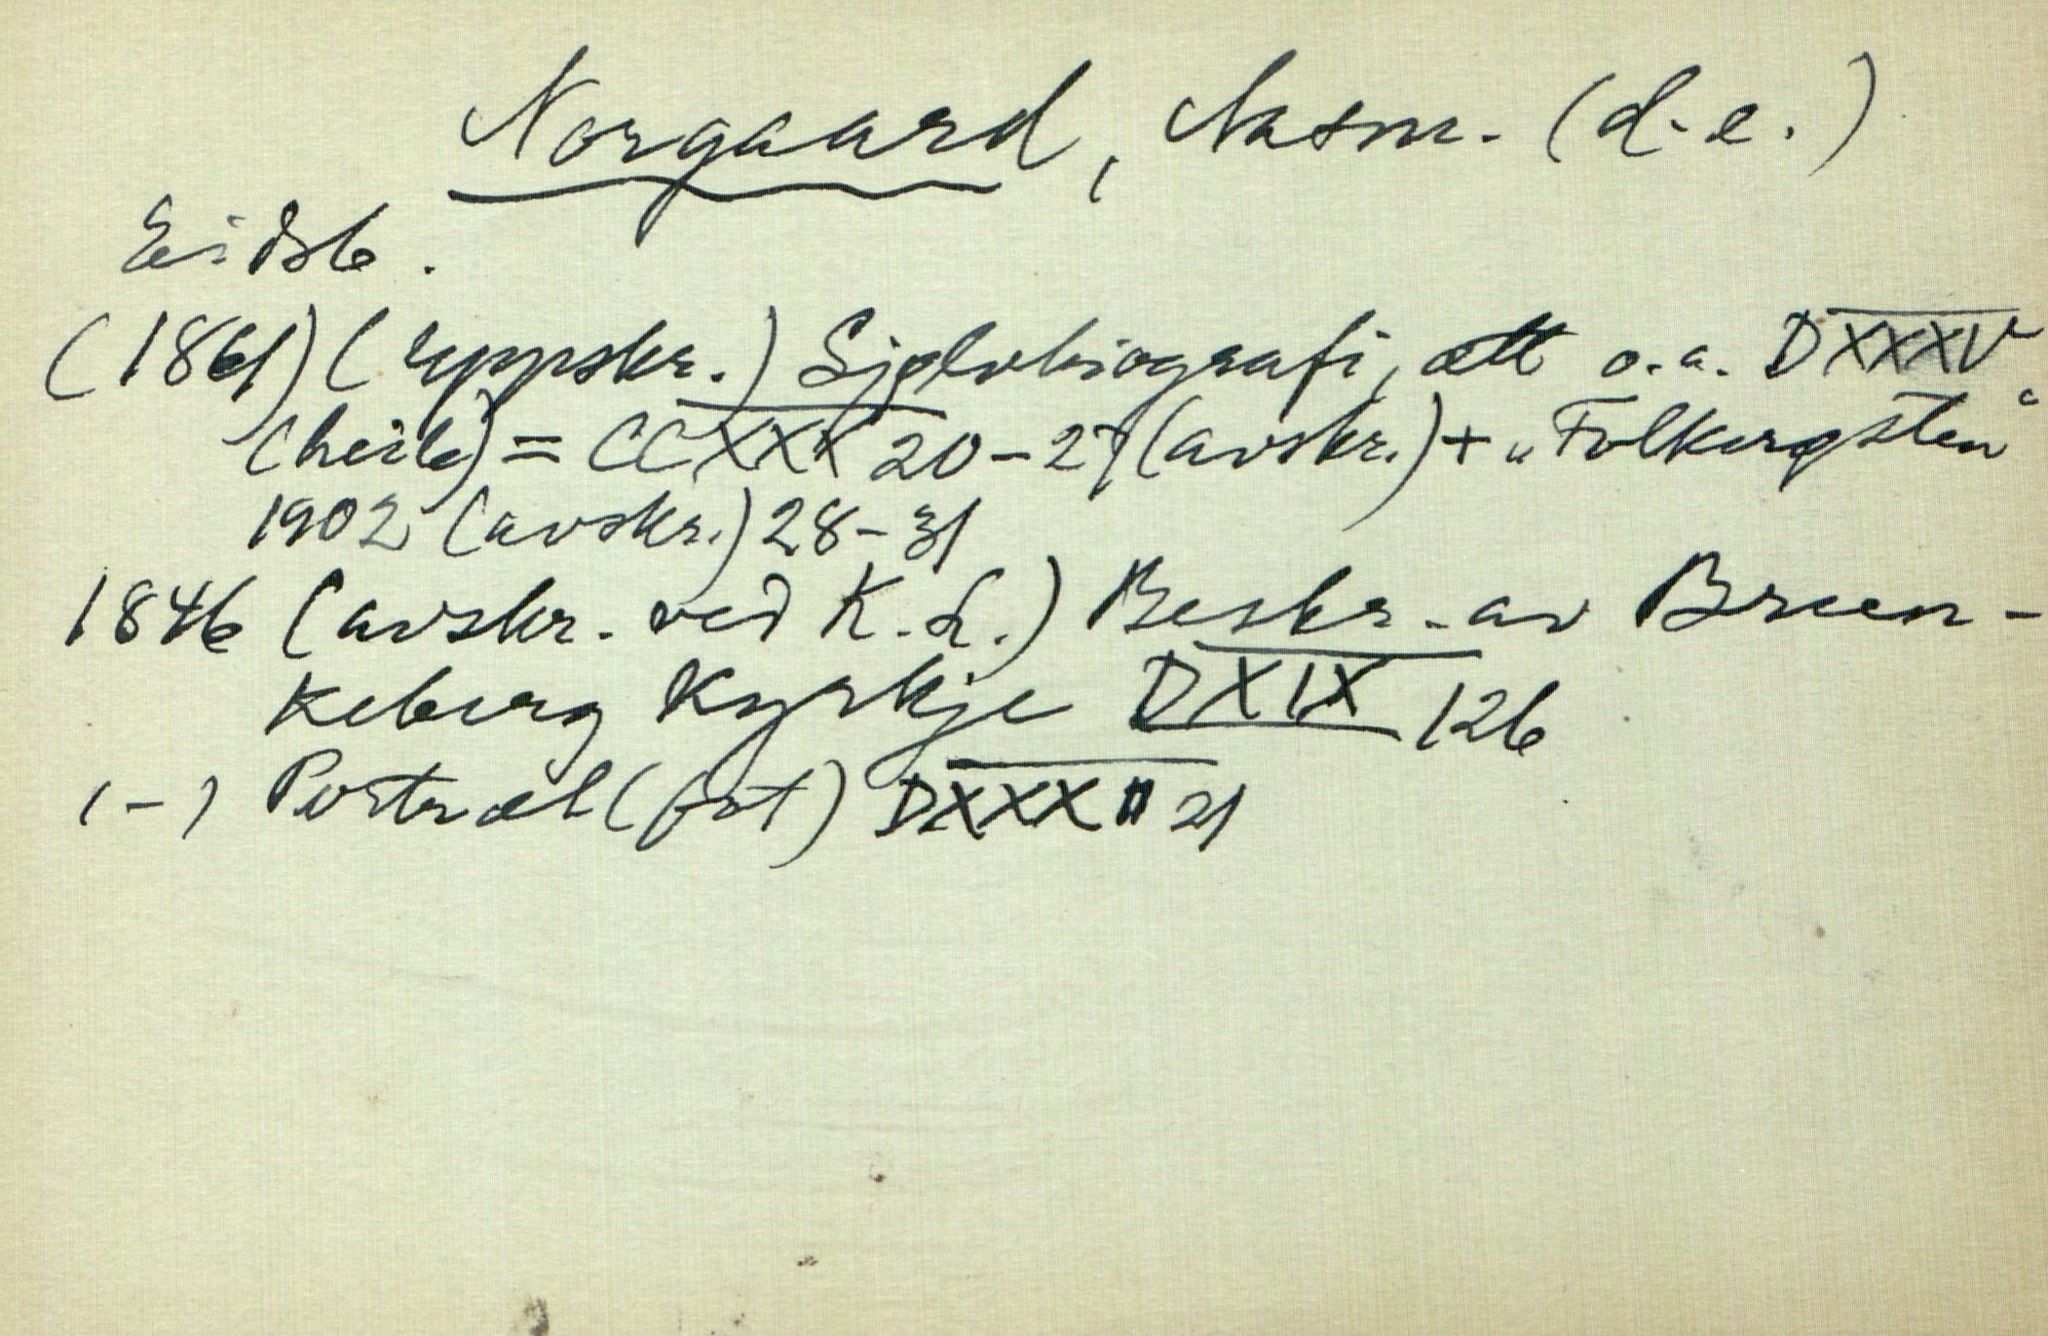 Norgaard, Aasm. (d.e.)
Eidsb.
(1861) (Uppskr.) Sjølvbiografi, ætt o.a. DXXXV
(heile) = CCXXX 20-27 (avskr.) + „Folkevegsten“
1902 (avskr.) 28-31
1846 (avskr. ved K.L.) Beskr. av Brun-
keberg Kyrkje DXIX 126
(-) Portræt (fot) DXXXII 21